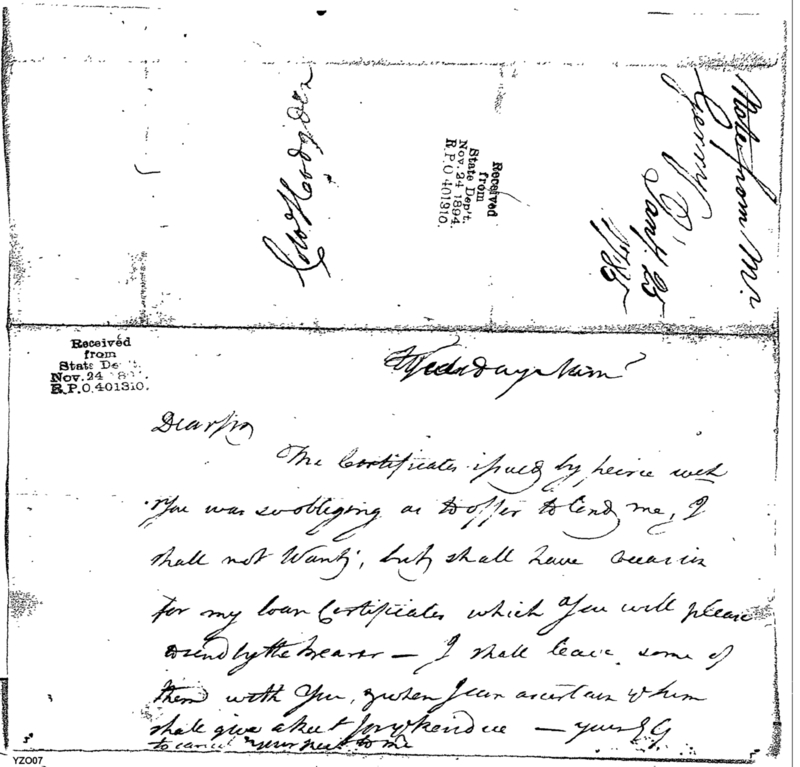 Note from Mr.
Gerry
Jany. 25
1785
Received
from
State Dep't.
Nov. 24 1894.
R.P.O 401310.
Colo Hodgdon
Received
from
State De
Nov. 24
R.P.O. 401310.
Wednesday
Dear Sir
The Certificates issued by peirce wch
You was so obliging as to offer to lend me, I
shall not Want, but shall have occasion
for my loan Certificates which You will please
to send by the bearer — I shall leave some of
them with You, & when I can ascertain whom
shall give a for — yours EG
to cancel your to me
YZO07